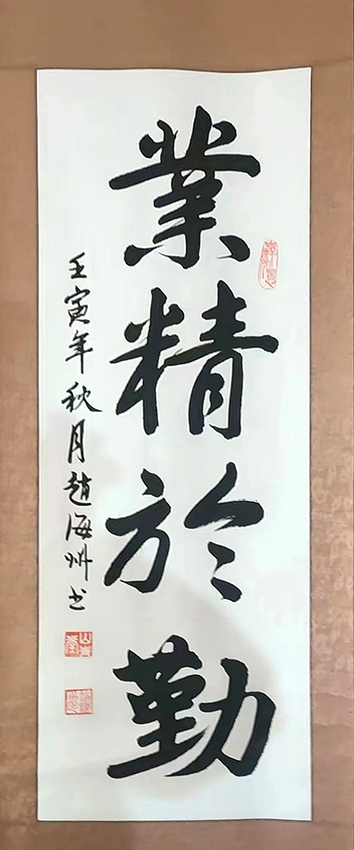 業精於勤
壬寅年秋月趙海州书